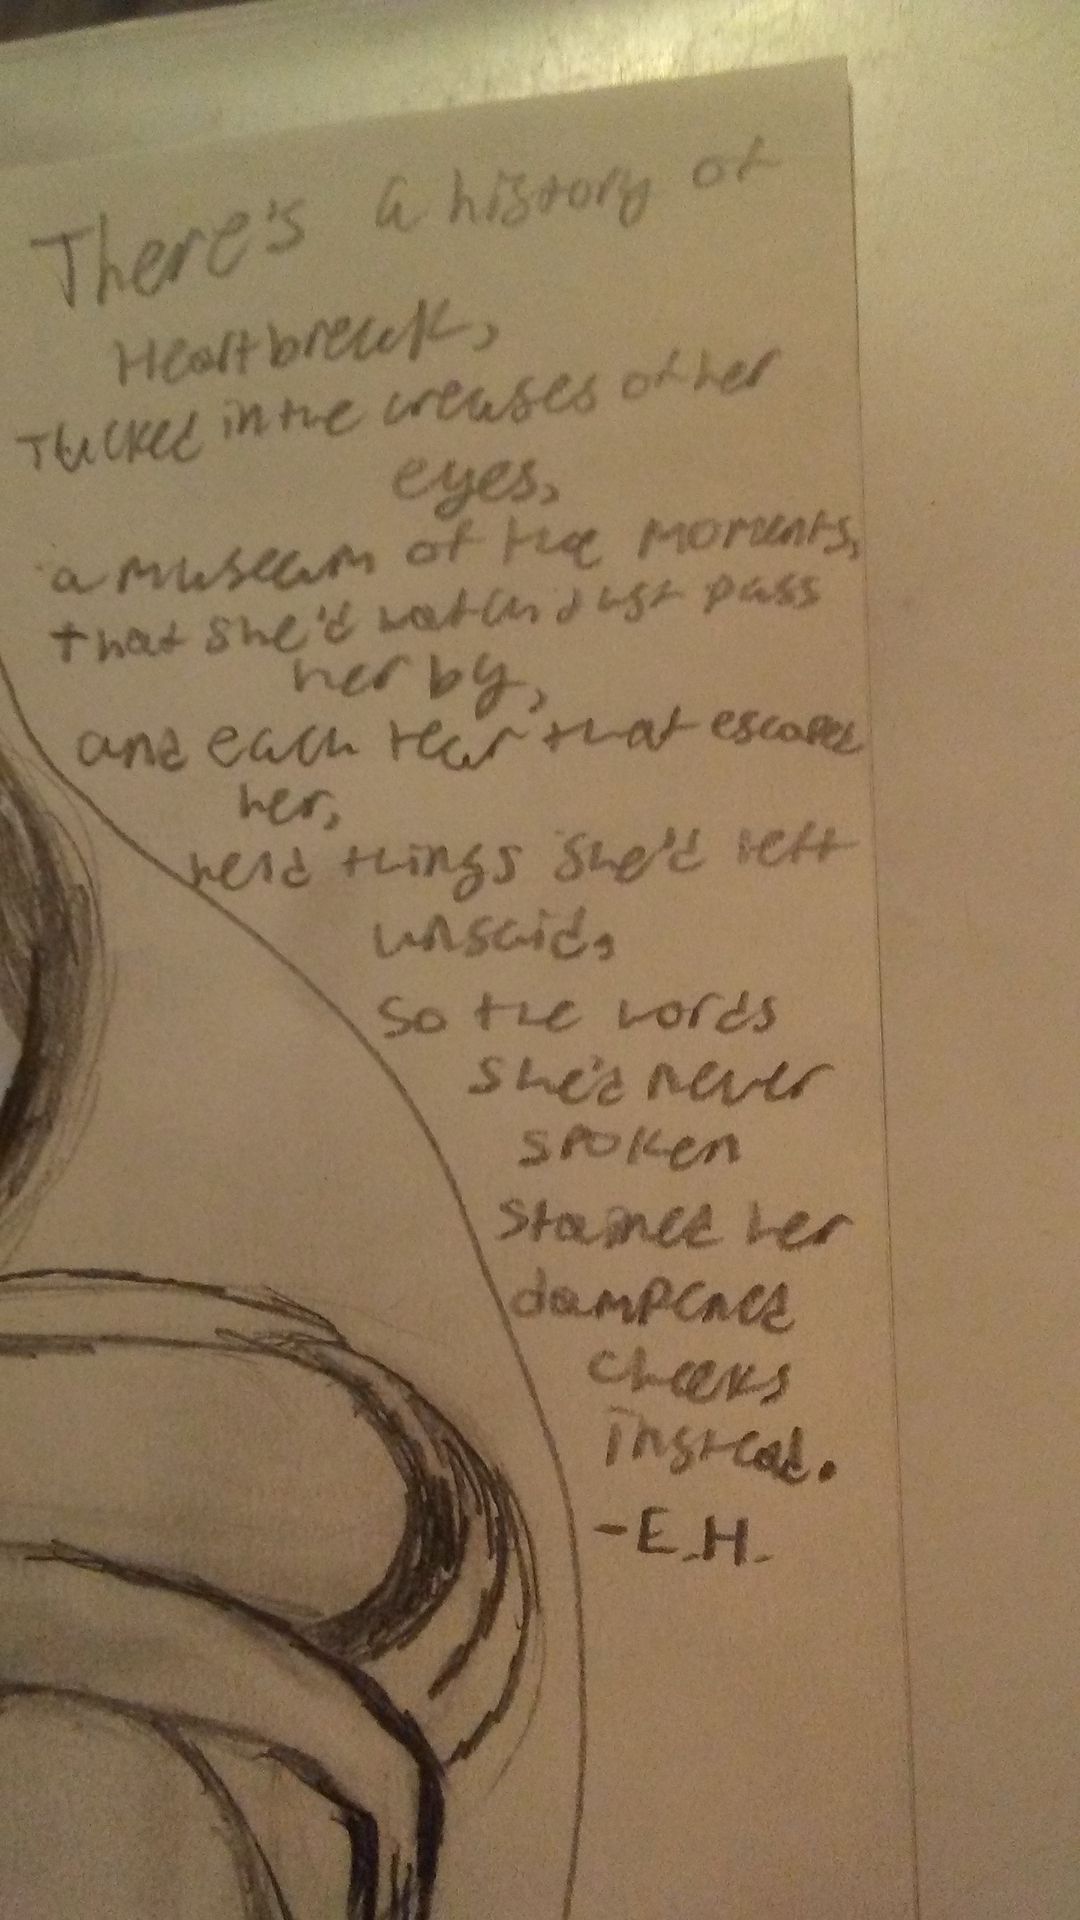 There's a history of
Heartbreak,
Tucked in the creases of her
eyes,
a museum of the moments,
that she'd watch just pass
her by,
and each tear that escaped
her,
held things she'd left
unsaid,
so the words
she'd never
spoken
stained her
dampened
cheeks
instead.
-E.H.